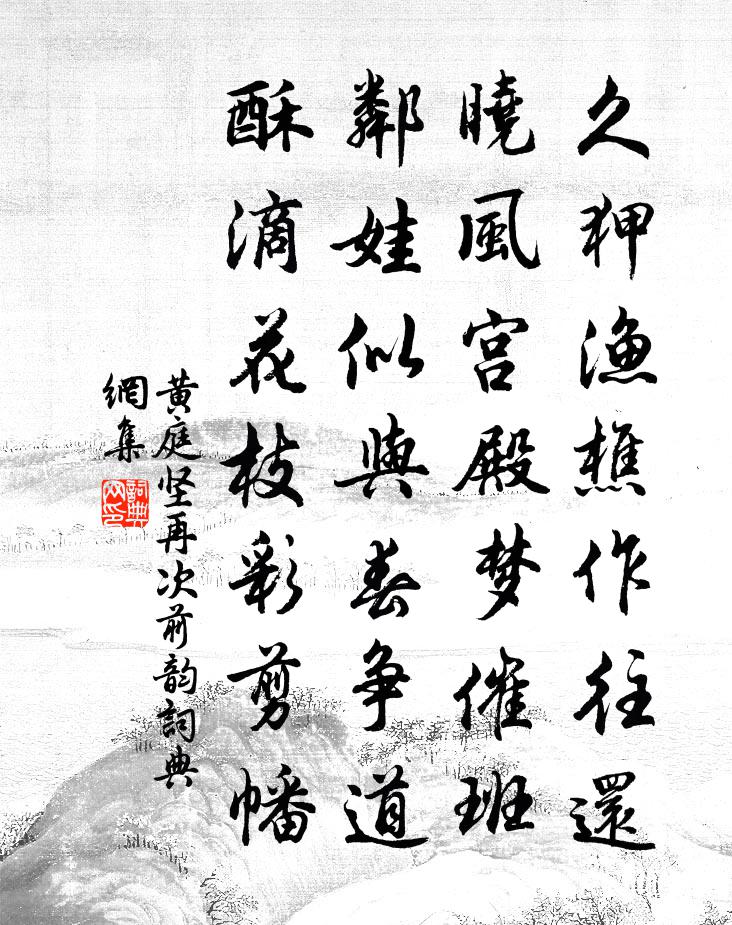 久狎漁樵作往還
曉風宮殿梦催班
鄰娃似與春争道
酥滴花枝彩剪幡
黄庭坚再次前韵詞典
網集
詞典網印